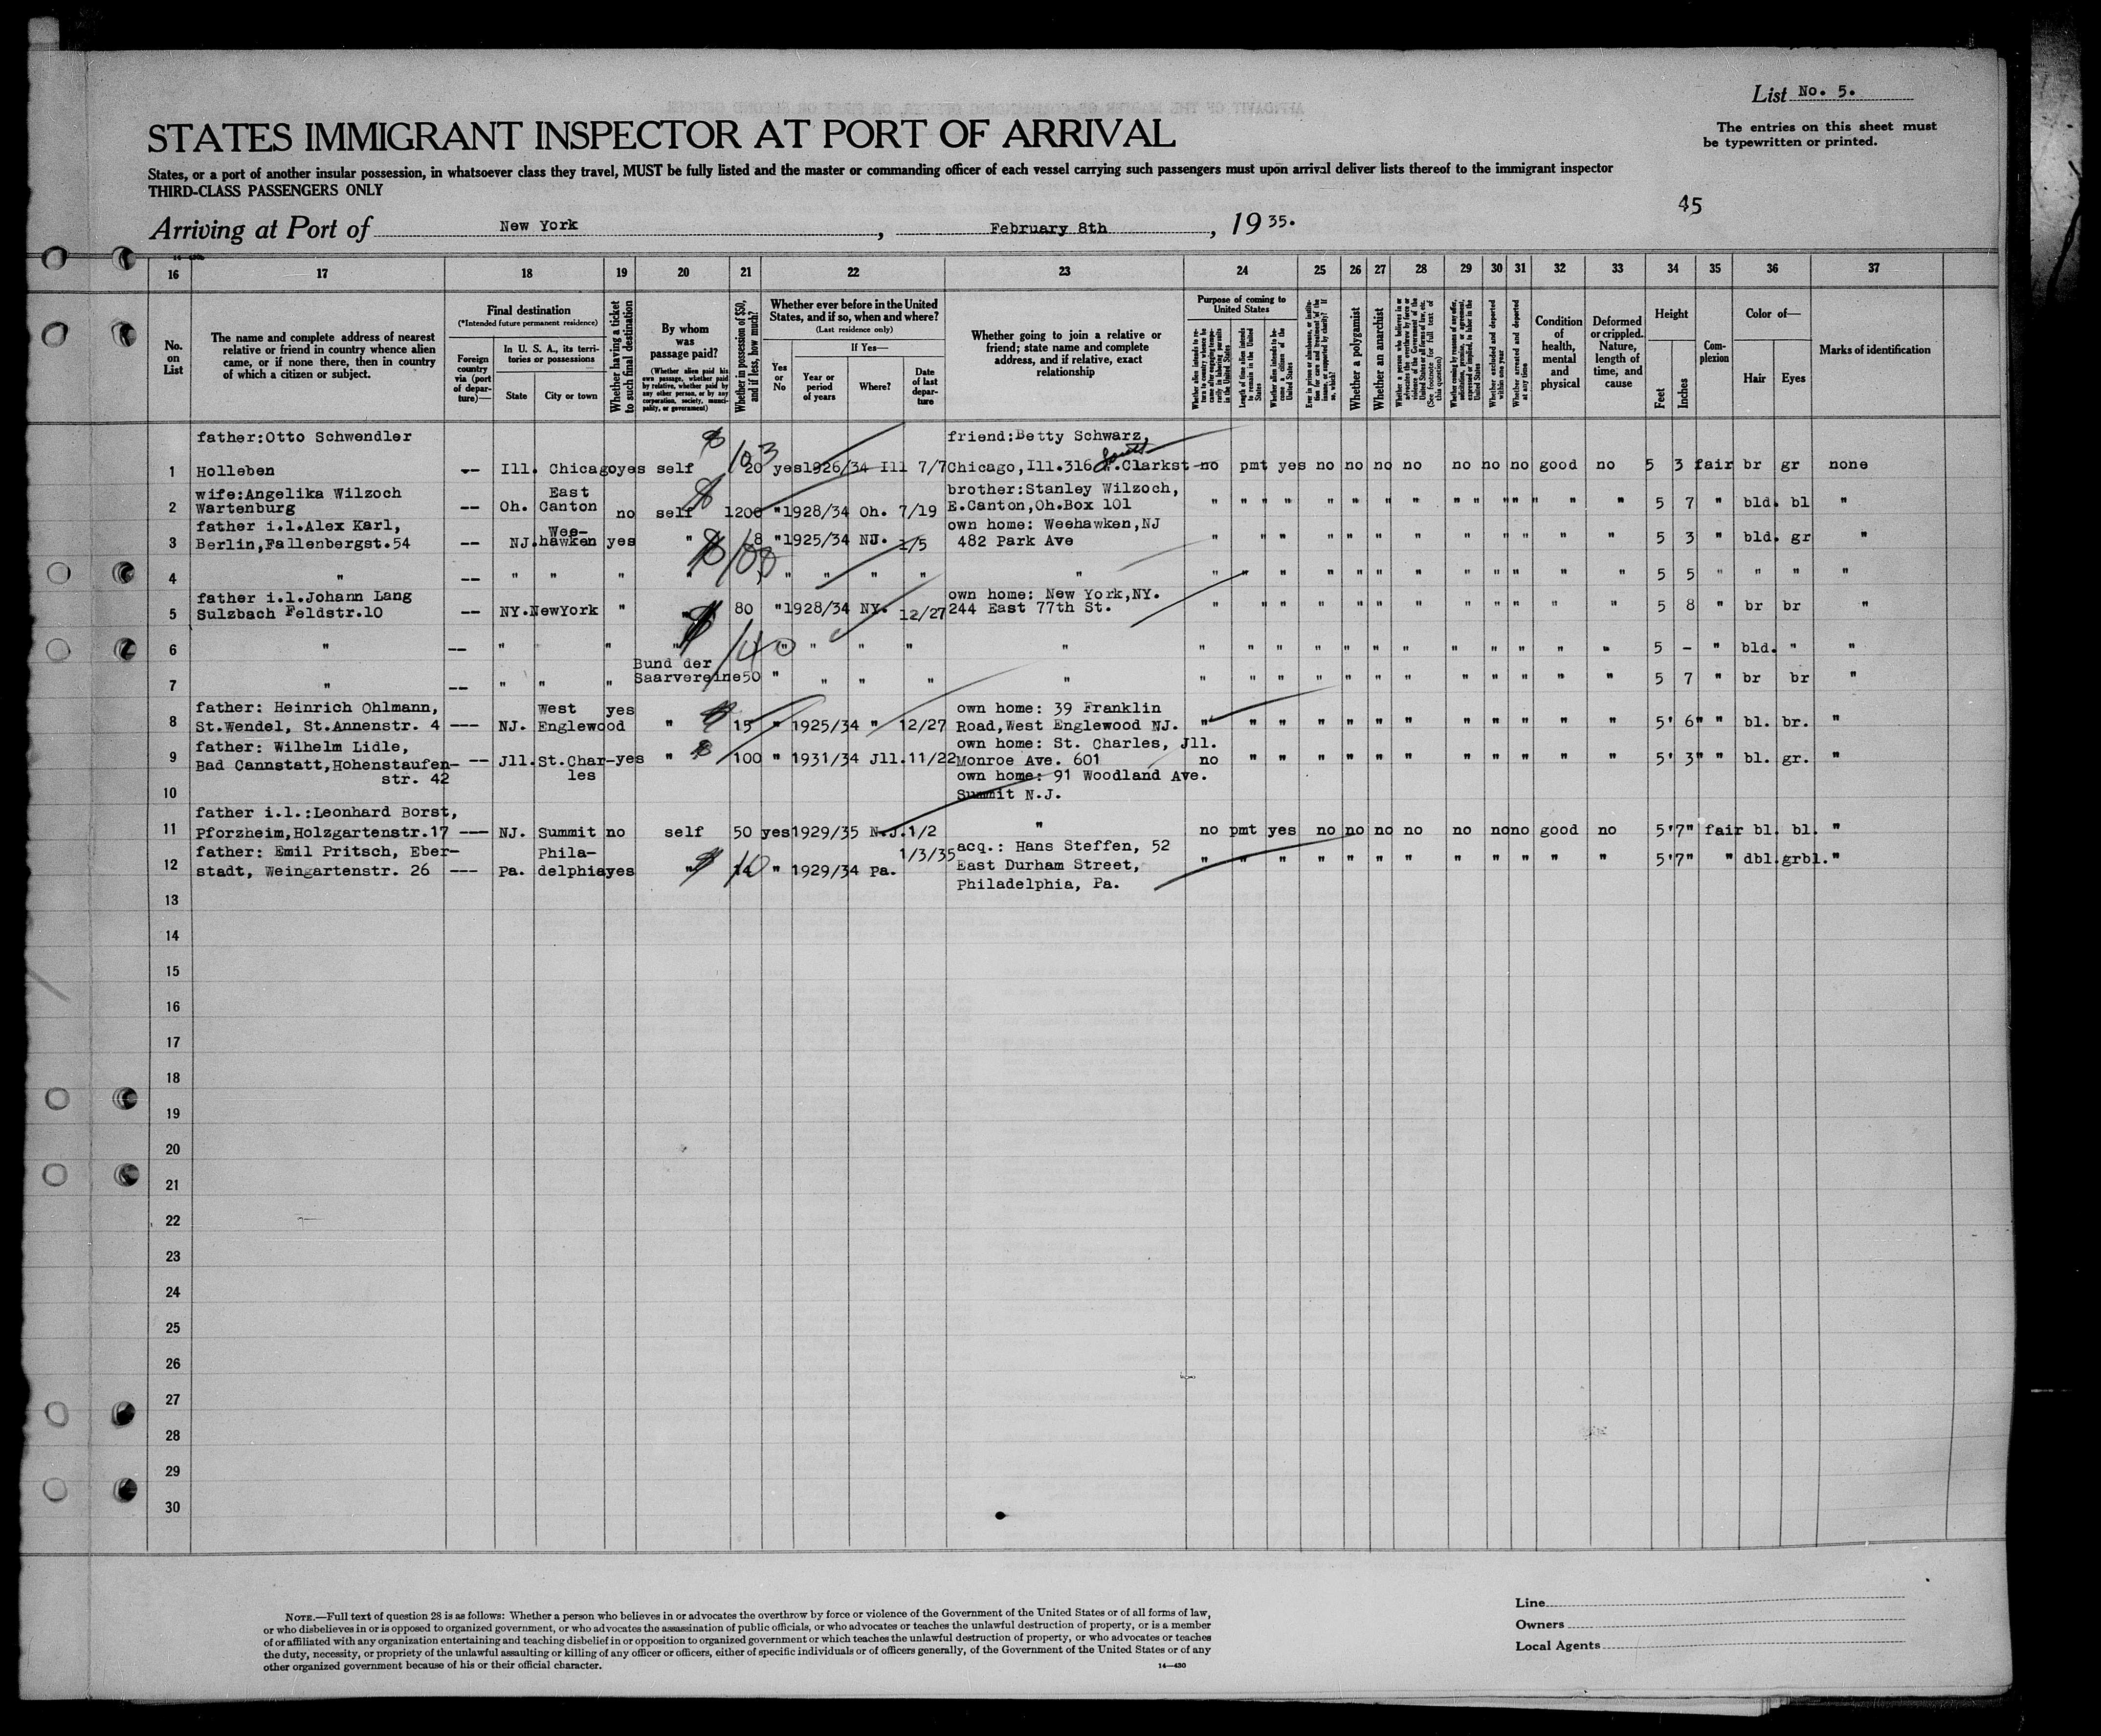 List No. 5.
The entries on this sheet must
be typewritten or printed.
STATES IMMIGRANT INSPECTOR AT PORT OF ARRIVAL
States, or a port of another insular possession, in whatsoever class they travel, MUST be fully listed and the master or commanding officer of each vessel carrying such passengers must upon arrival deliver lists thereof to the immigrant inspector
THIRD-CLASS PASSENGERS ONLY
45
Arriving at Port of New York, February 8th, 1935.
16 17 18 19 20 21 22 23 24 25 26 27 28 29 30 31 32 33 34 35 36 37
No. on List
The name and complete address of nearest relative or friend in country whence alien came, or if none there, then in country of which a citizen or subject.
Final destination
(*Intended future permanent residence)
Foreign country via (port of departure)—
In U. S. A., its territories or possessions
State
City or town
Whether having a ticket to such final destination
By whom was passage paid?
(Whether alien paid his own passage, whether paid by relative, whether paid by any other person, or by any corporation, society, municipality, or government)
Whether in possession of $50, and if less, how much?
Whether ever before in the United States, and if so, when and where?
(Last residence only)
Yes or No
If Yes—
Year or period of years
Where?
Date of last departure
Whether going to join a relative or friend; state name and complete address, and if relative, exact relationship
Purpose of coming to United States
Length of time alien intends to remain in the United States
Whether alien intends to become a citizen of the United States
Whether a polygamist
Whether an anarchist
Whether excluded and deported within one year
Whether arrested and deported at any time
Condition of health, mental and physical
Deformed or crippled. Nature, length of time, and cause
Height
Feet
Inches
Complexion
Color of—
Hair
Eyes
Marks of identification
father:Otto Schwendler friend:Betty Schwarz,
1 Holleben -- Ill. Chicago yes self 20 103 yes 1926/34 Ill 7/7 Chicago,Ill.316 Clarkst no pmt yes no no no no no no no good no 5 3 fair br gr none
wife:Angelika Wilzoch East brother:Stanley Wilzoch,
2 Wartenburg -- Oh. Canton no self 1200 " 1928/34 Oh. 7/19 E.Canton,Oh.Box 101 " " " " " " " " " " " " " " 5 7 " bld. bl "
father i.l.Alex Karl, Wee- own home: Weehawken,NJ
3 Berlin,Fallenbergst.54 -- NJ. hawken yes " 8 " 1925/34 NJ. 1/5 482 Park Ave " " " " " " " " " " " " 5 3 " bld. gr "
4 " -- " " " " 100 " " " " " " " " " " " " " " " " 5 5 " " " "
father i.l.Johann Lang own home: New York,NY.
5 Sulzbach Feldstr.10 -- NY. NewYork " " 80 " 1928/34 NY. 12/27 244 East 77th St. " " " " " " " " " " " " 5 8 " br br "
6 " -- " " " 140 " " " " " " " " " " " " " " " " 5 - " bld. " "
Bund der
7 " -- " " " Saarvereine 50 " " " " " " " " " " " " " " " " " 5 7 " br br "
father: Heinrich Ohlmann, West yes own home: 39 Franklin
8 St.Wendel, St.Annenstr. 4 --- NJ. Englewood " 15 " 1925/34 " 12/27 Road,West Englewood NJ. " " " " " " " " " " " " 5' 6" " bl. br. "
father: Wilhelm Lidle, own home: St. Charles, Jll.
9 Bad Cannstatt,Hohenstaufen- -- Jll. St.Char- yes " 100 " 1931/34 Jll. 11/22 Monroe Ave. 601 no " " " " " " " " " " " 5' 3" " bl. gr. "
str. 42 les own home: 91 Woodland Ave.
10 Summit N.J.
father i.l.:Leonhard Borst,
11 Pforzheim,Holzgartenstr.17 --- NJ. Summit no self 50 yes 1929/35 N.J. 1/2 " no pmt yes no no no no no no no good no 5'7" fair bl. bl. "
father: Emil Pritsch, Eber- Phila- 1/3/35 acq.: Hans Steffen, 52
12 stadt, Weingartenstr. 26 --- Pa. delphia yes " 10 " 1929/34 Pa. East Durham Street, " " " " " " " " " " " " 5'7" " dbl. grbl. "
Philadelphia, Pa.
13
14
15
16
17
18
19
20
21
22
23
24
25
26
27
28
29
30
NOTE.—Full text of question 28 is as follows: Whether a person who believes in or advocates the overthrow by force or violence of the Government of the United States or of all forms of law,
or who disbelieves in or is opposed to organized government, or who advocates the assassination of public officials, or who advocates or teaches the unlawful destruction of property, or is a member
of or affiliated with any organization entertaining and teaching disbelief in or opposition to organized government or which teaches the unlawful destruction of property, or who advocates or teaches
the duty, necessity, or propriety of the unlawful assaulting or killing of any officer or officers, either of specific individuals or of officers generally, of the Government of the United States or of any
other organized government because of his or their official character.
14—430
Line
Owners
Local Agents